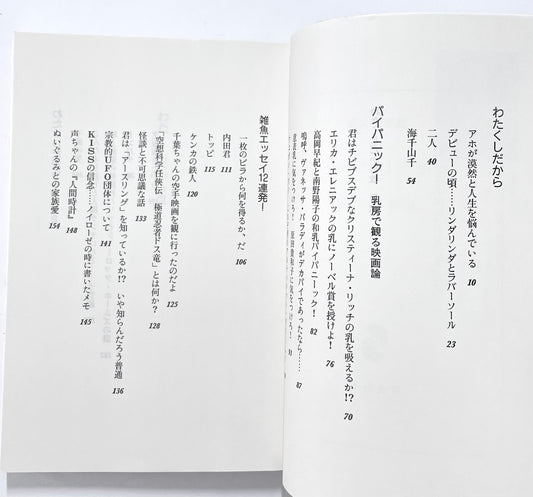 わたくしだから
アホが漠然と人生を悩んでいる 10
デビューの頃……リンダリンダとラバーソール 23
二人 40
海千山千 54
パイパニック! 乳房で観る映画論
君はチビブスデブなクリスティーナ・リッチの乳を吸えるか!? 70
エリカ・エレニアックの乳にノーベル賞を授けよ! 76
高岡早紀と南野陽子の和乳パイパニーック! 82
嗚呼、ヴァネッサ・パラディがデカパイであったなら…… 87
に気をつけろ!
雑魚エッセイ12連発!
一枚のビラから何を得るか、だ 106
内田君 111
トッピ 115
ケンカの鉄人 120
千葉ちゃんの空手映画を観に行ったのだよ 125
「空想科学任侠伝 極道忍者ドス竜」とは何か? 128
怪談と不可思議な話 133
君は「アースリング」を知っているか!? いや知らんだろう普通 136
宗教的UFO団体について 141
KISSの信念……ノイローゼの時に書いたメモ 145
声ちゃんの『人間時計』 148
ぬいぐるみとの家族愛 154